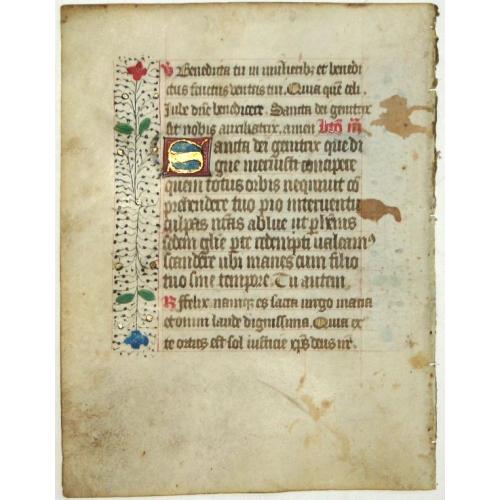 V Benedicta tu in mulieribz et benedi
ctus fructus ventris tui. Quia que celi.
Jube dne benedicere. Sancta dei genitrix
sit nobis auxiliatrix. amen
Sancta dei genitrix que di
gne meruisti concipere
quem totus orbis nequivit co
prehendere tuo pio interventu
culpas nras ablue ut perhenis
sedem glie p te redempti valeam9
scandere ubi manes cum filio
tuo sine tempore. Tu autem
R Felix namq es sacra virgo maria
et omni laude dignissima. Quia ex
te ortus est sol iusticie xps deus nr.